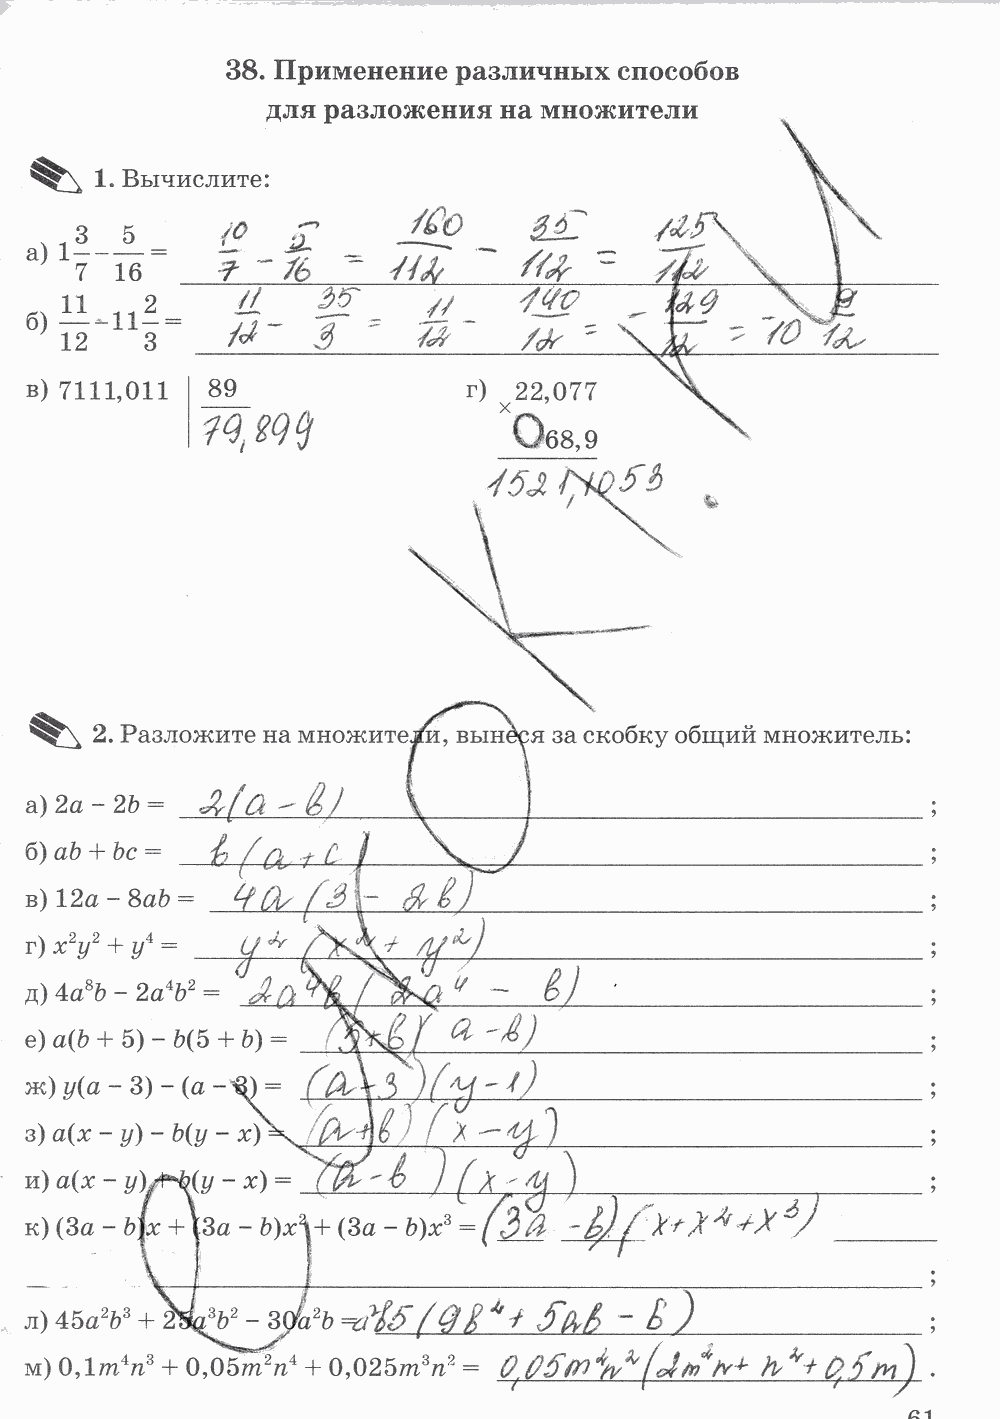 38. Применение различных способов
для разложения на множители
1. Вычислите:
а) 1 3/7 − 5/16 = 10/7 − 5/16 = 160/112 − 35/112 = 125/112
б) 11/12 − 11 2/3 = 11/12 − 35/3 = 11/12 − 140/12 = − 129/12 = − 10 9/12
в) 7111,011 | 89 г) × 22,077
79,899 068,9
1521,1053
2. Разложите на множители, вынеся за скобку общий множитель:
а) 2a − 2b = 2(a − b) ;
б) ab + bc = b(a + c) ;
в) 12a − 8ab = 4a(3 − 2b) ;
г) x²y² + y⁴ = y²(x² + y²) ;
д) 4a⁸b − 2a⁴b² = 2a⁴b(2a⁴ − b) ;
е) a(b + 5) − b(5 + b) = (5+b)(a − b) ;
ж) y(a − 3) − (a − 3) = (a − 3)(y − 1) ;
з) a(x − y) − b(y − x) = (a+b)(x − y) ;
и) a(x − y) + b(y − x) = (a − b)(x − y) ;
к) (3a − b)x + (3a − b)x² + (3a − b)x³ = (3a − b)(x + x² + x³)
;
л) 45a²b³ + 25a³b² − 30a²b = (9b² + 5ab − 6) ;
м) 0,1m⁴n³ + 0,05m²n⁴ + 0,025m³n² = 0,05m²n²(2m²n + n² + 0,5m) .
61